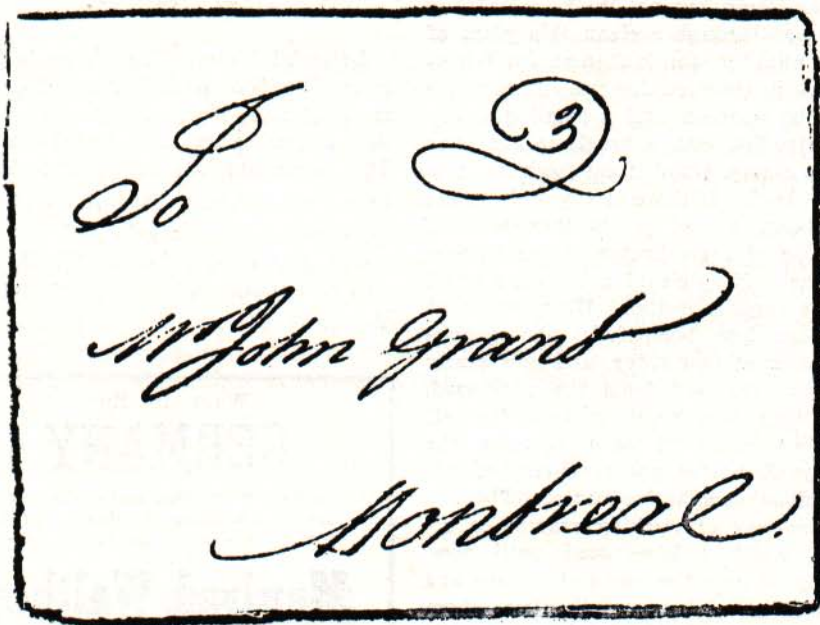 To 3
Mr John Grant
Montreal.